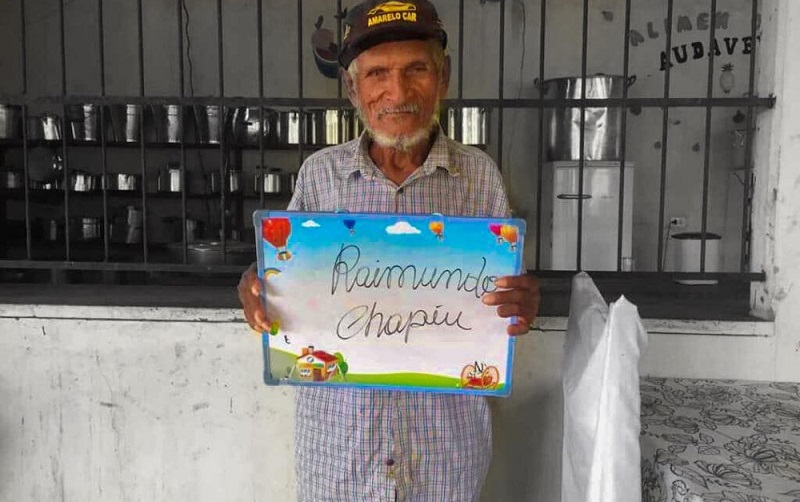 AMARELO CAR
ALIMEN
AUDAVE
Raimundo
Chapéu